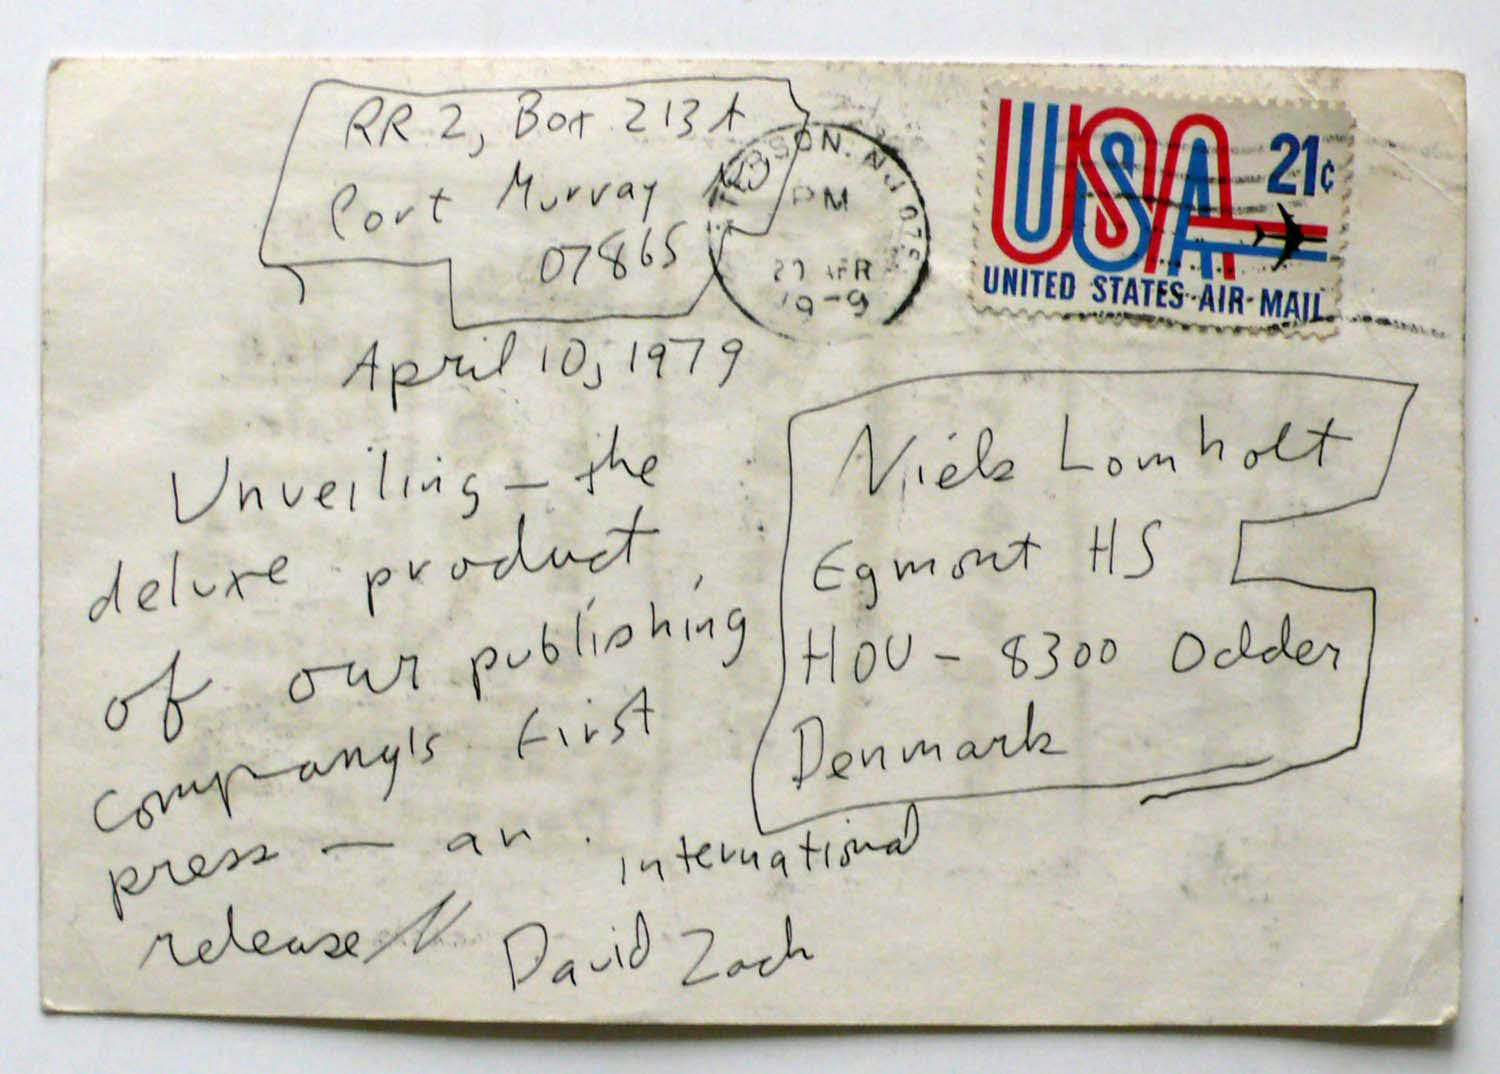 RR 2, Box 213A
Port Murray NJ
07865
PM
APR
USA 21c
UNITED STATES AIR MAIL
April 10, 1979
Unveiling — the
deluxe product
of our publishing
company's first
press — an international
release
David Zack
Niels Lomholt
Egmont HS
HOU - 8300 Odder
Denmark